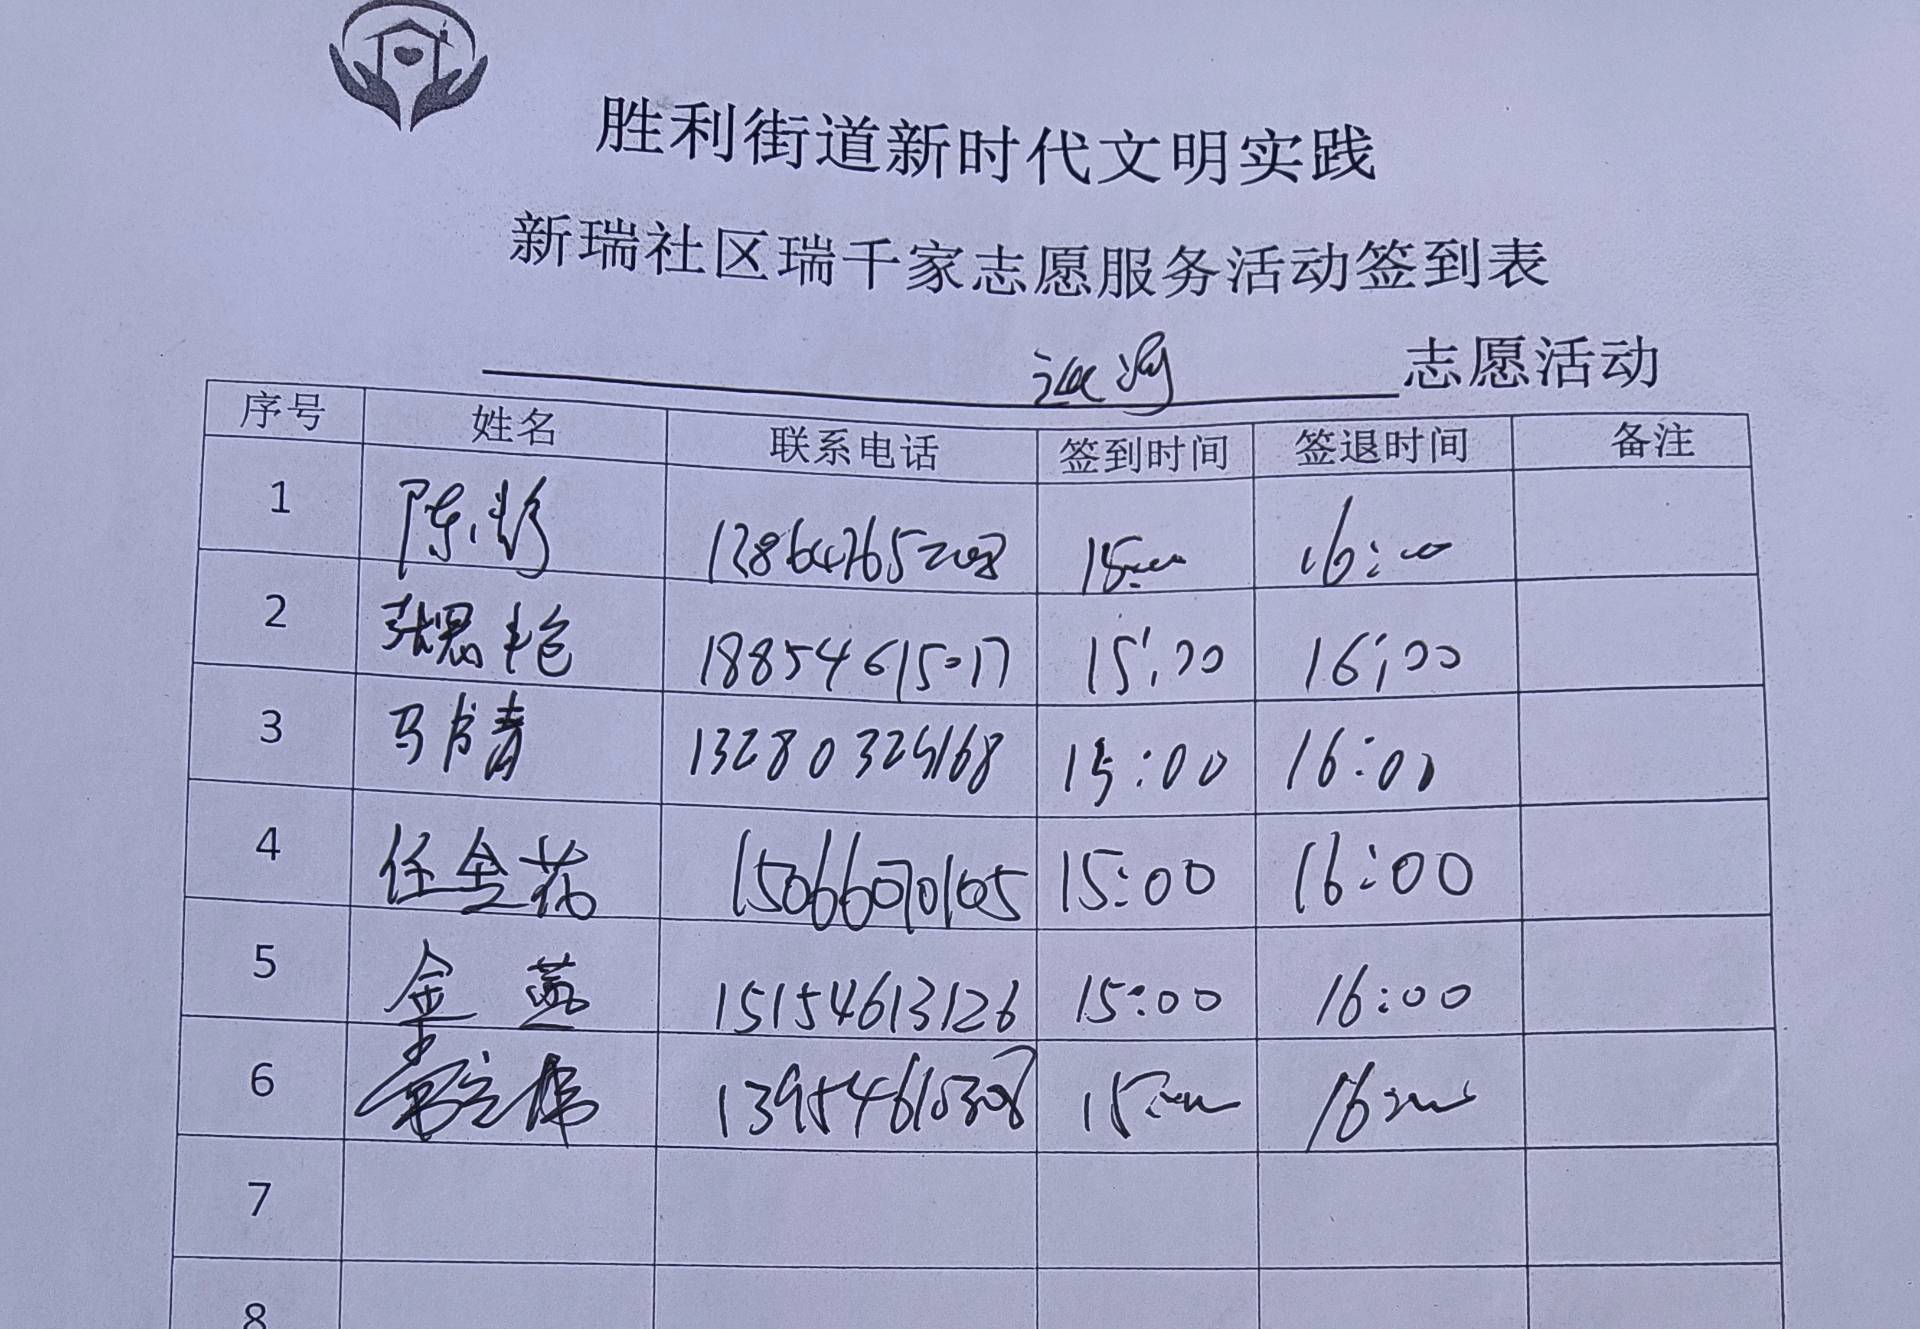 胜利街道新时代文明实践
新瑞社区瑞千家志愿服务活动签到表
志愿活动
序号 姓名 联系电话 签到时间 签退时间 备注
1 陈 15:00 16:00
2 张思艳 18854615017 15:00 16:00
3 马书青 13280325168 15:00 16:00
4 任金花 15066070105 15:00 16:00
5 金燕 15154613126 15:00 16:00
6 15:00 16:00
7
8